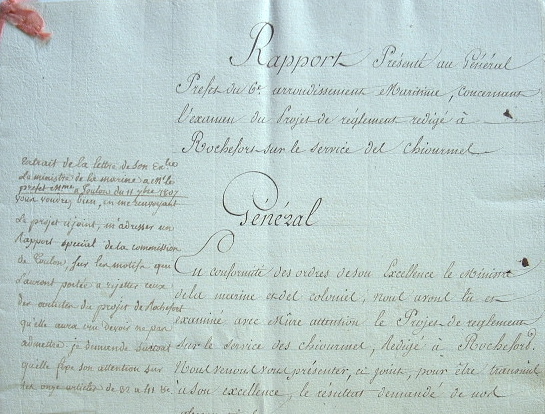 Rapport Présenté au Général
Prefet du 6e. arrondissement Maritime, concernant
l'examen du Projet de réglement redigé à
Rochefort sur le service des chiourmes
Extrait de la lettre de son Exlce
Le ministre de la marine a Mr. le
prefet mme a Toulon du 11 7bre 1807
vous voudrez bien, en me renvoyant
Le projet cijoint, m'adresser un
Rapport spécial de la commission
de Toulon, sur les motifs qui
L'auront portée a rejetter ceux
des articles du projet de Rochefort
qu'elle aura cru devoir ne pas
admettre, je demande surtout
qu'elle fixe son attention sur
les onze articles de 32 a 42 be
Général
En conformité des ordres de son Excellence le Ministre
de la marine et des colonies, nous avons lu et
examiné avec Mûre attention le Projet de reglement
sur le service des chiourmes, Redigé à Rochefort.
Nous venons vous présenter, ci joint, pour être transmis
a son excellence, le resultat demandé de nos